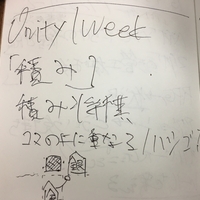 Unity 1week
「積み」
積み将棋
コマの上に重なる/ハシゴ
銀
金